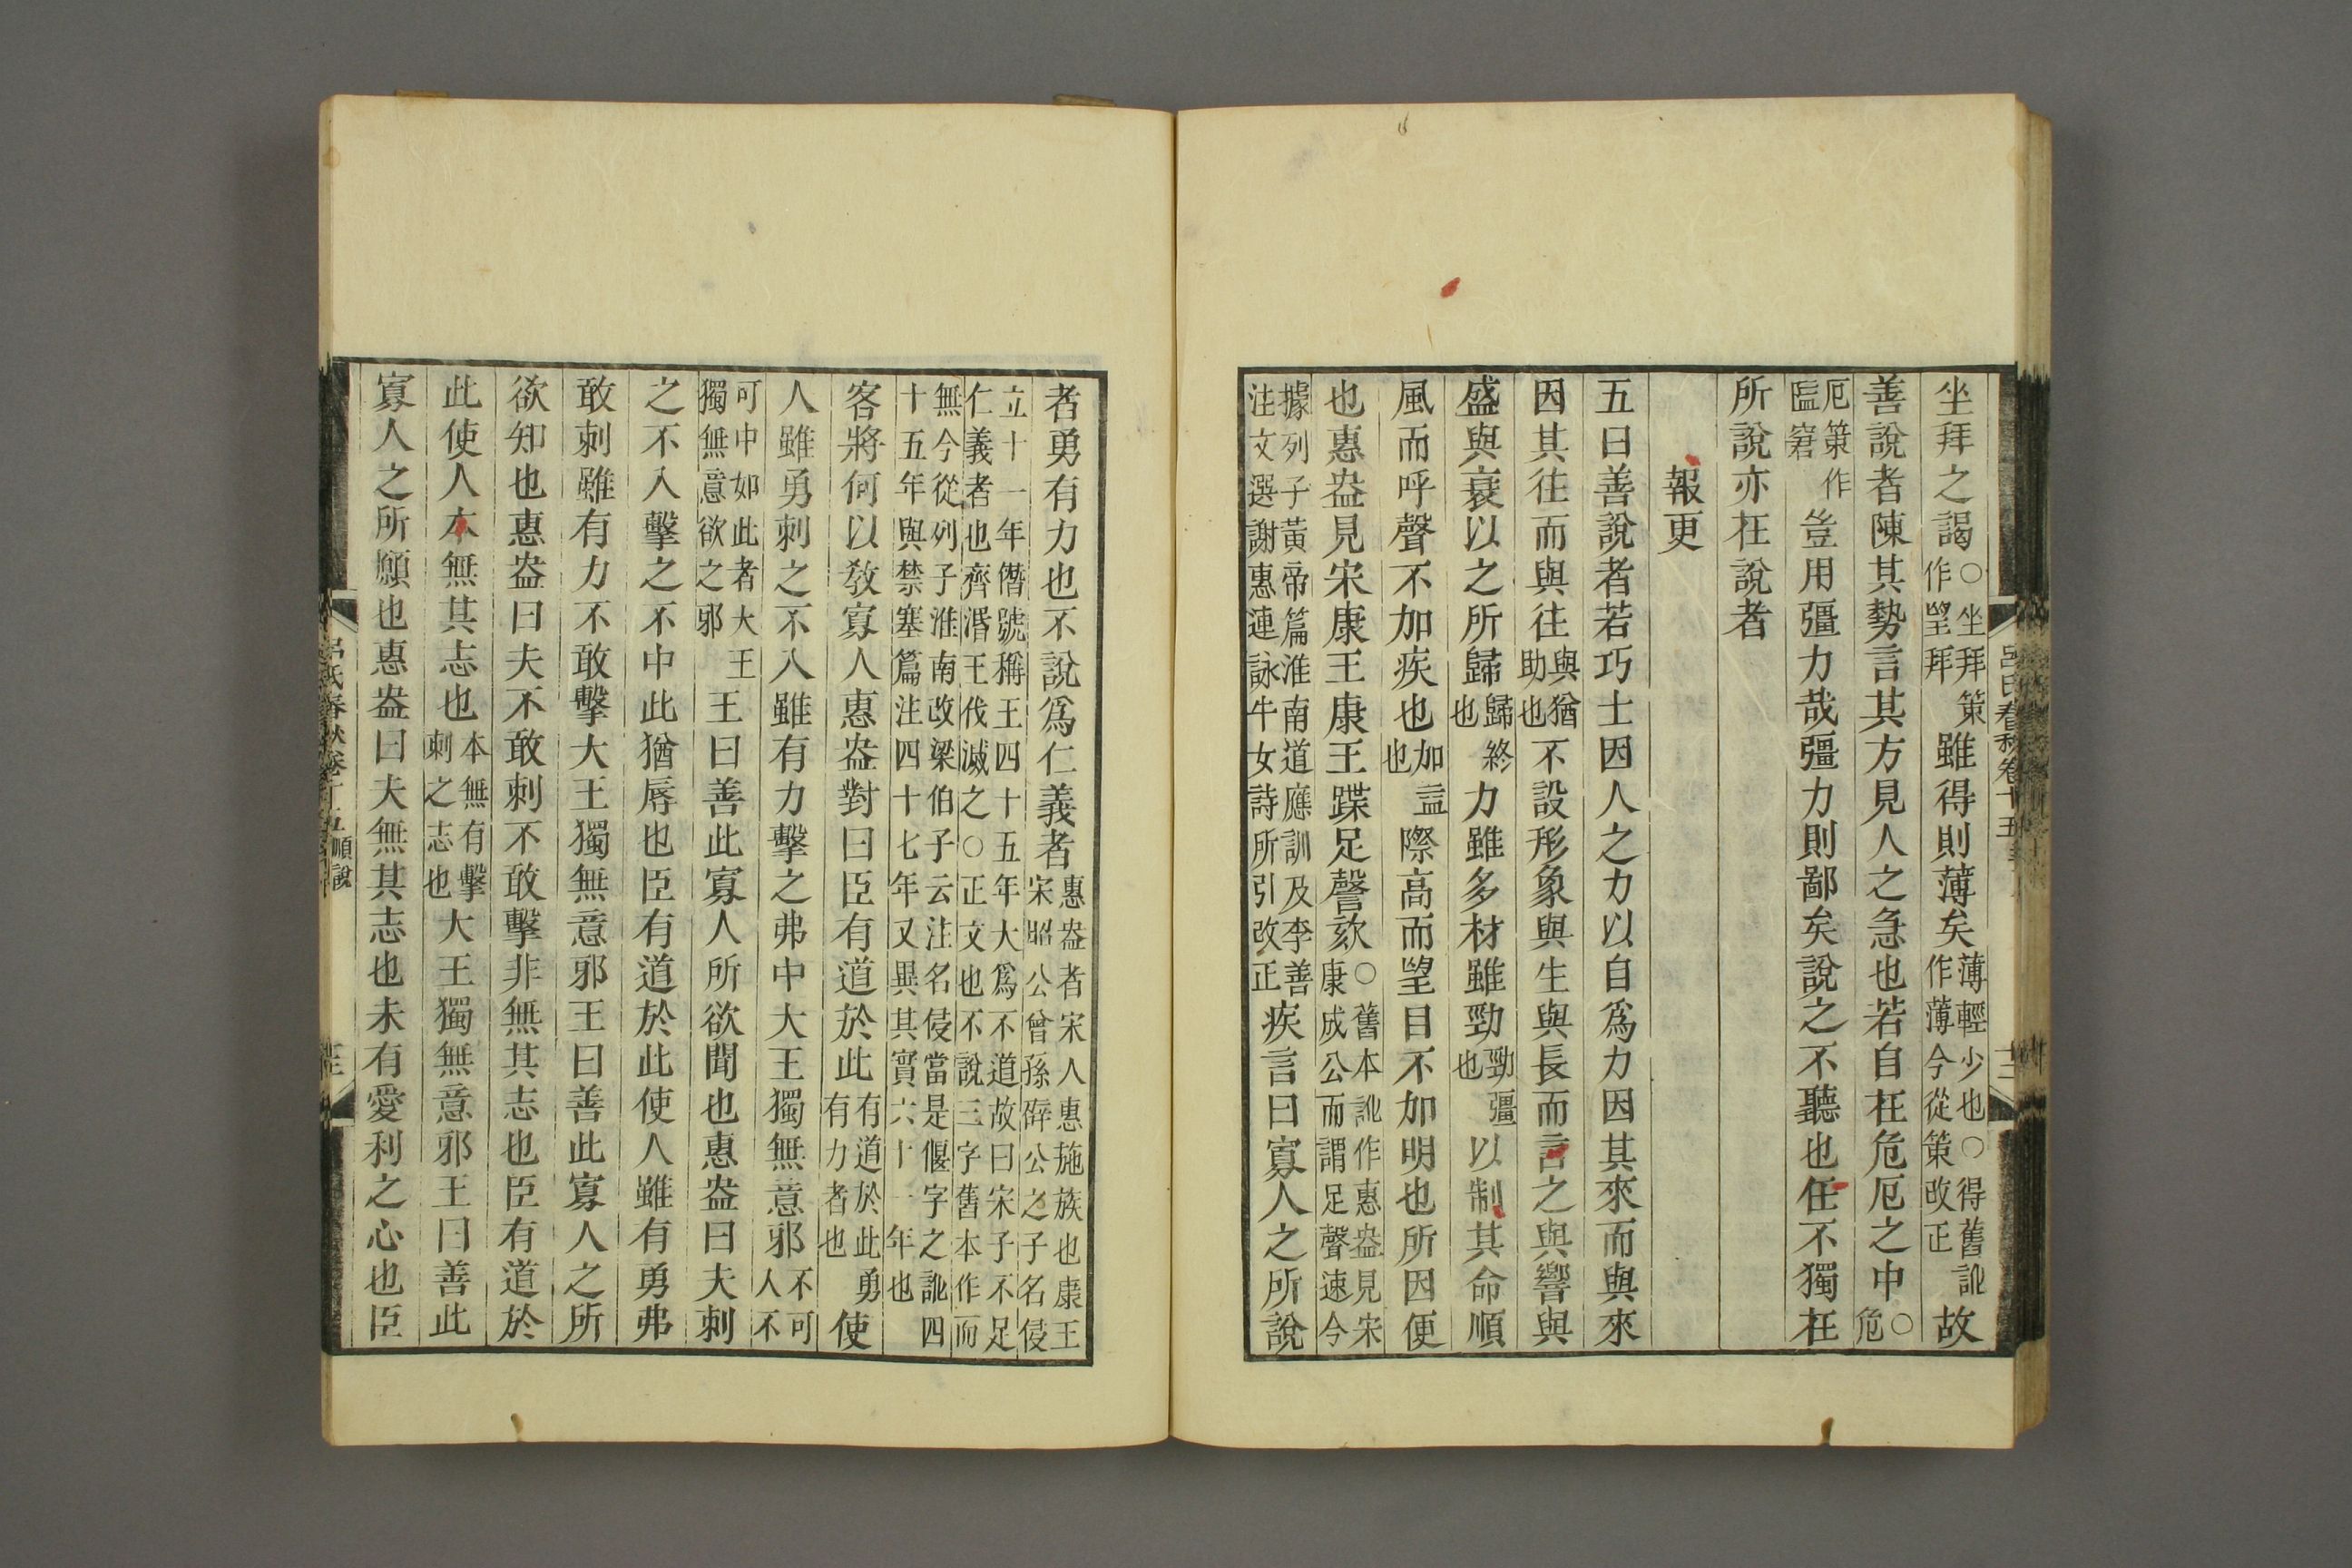 坐拜之謁○坐拜策作望拜雖得則薄矣薄輕少也○得舊訛作薄今從策改正故
善說者陳其勢言其方見人之急也若自在危厄之中○危
厄策作𨺬窘豈用彊力哉彊力則鄙矣說之不聽也任不獨在
所說亦在說者
報更
五曰善說者若巧士因人之力以自爲力因其來而與來
因其往而與往與猶助也不設形象與生與長而言之與響與
盛與衰以之所歸歸終也力雖多材雖勁勁彊也以制其命順
風而呼聲不加疾也加益也際高而望目不加明也所因便
也惠盎見宋康王康王蹀足謦欬○舊本訛作惠盎見宋康成公而謂足聲速今
據列子黃帝篇淮南道應訓及李善注文選謝惠連詠牛女詩所引改正疾言曰寡人之所說
呂氏春秋卷十五
十二
者勇有力也不說爲仁義者惠盎者宋人惠施族也康王宋昭公曾孫辟公之子名侵
立十一年僭號稱王四十五年大爲不道故曰宋子不足仁義者也齊湣王伐滅之○正文也不說三字舊本作而
無今從列子淮南改梁伯子云注名侵當是偃字之訛四十五年與禁塞篇注四十七年又異其實六十一年也
客將何以敎寡人惠盎對曰臣有道於此有道於此勇有力者也使
人雖勇刺之不入雖有力擊之弗中大王獨無意邪不可人不
可中如此者大王獨無意欲之邪王曰善此寡人所欲聞也惠盎曰夫刺
之不入擊之不中此猶辱也臣有道於此使人雖有勇弗
敢刺雖有力不敢擊大王獨無意邪王曰善此寡人之所
欲知也惠盎曰夫不敢刺不敢擊非無其志也臣有道於
此使人本無其志也本無有擊刺之志也大王獨無意邪王曰善此
寡人之所願也惠盎曰夫無其志也未有愛利之心也臣
呂氏春秋卷十五順說